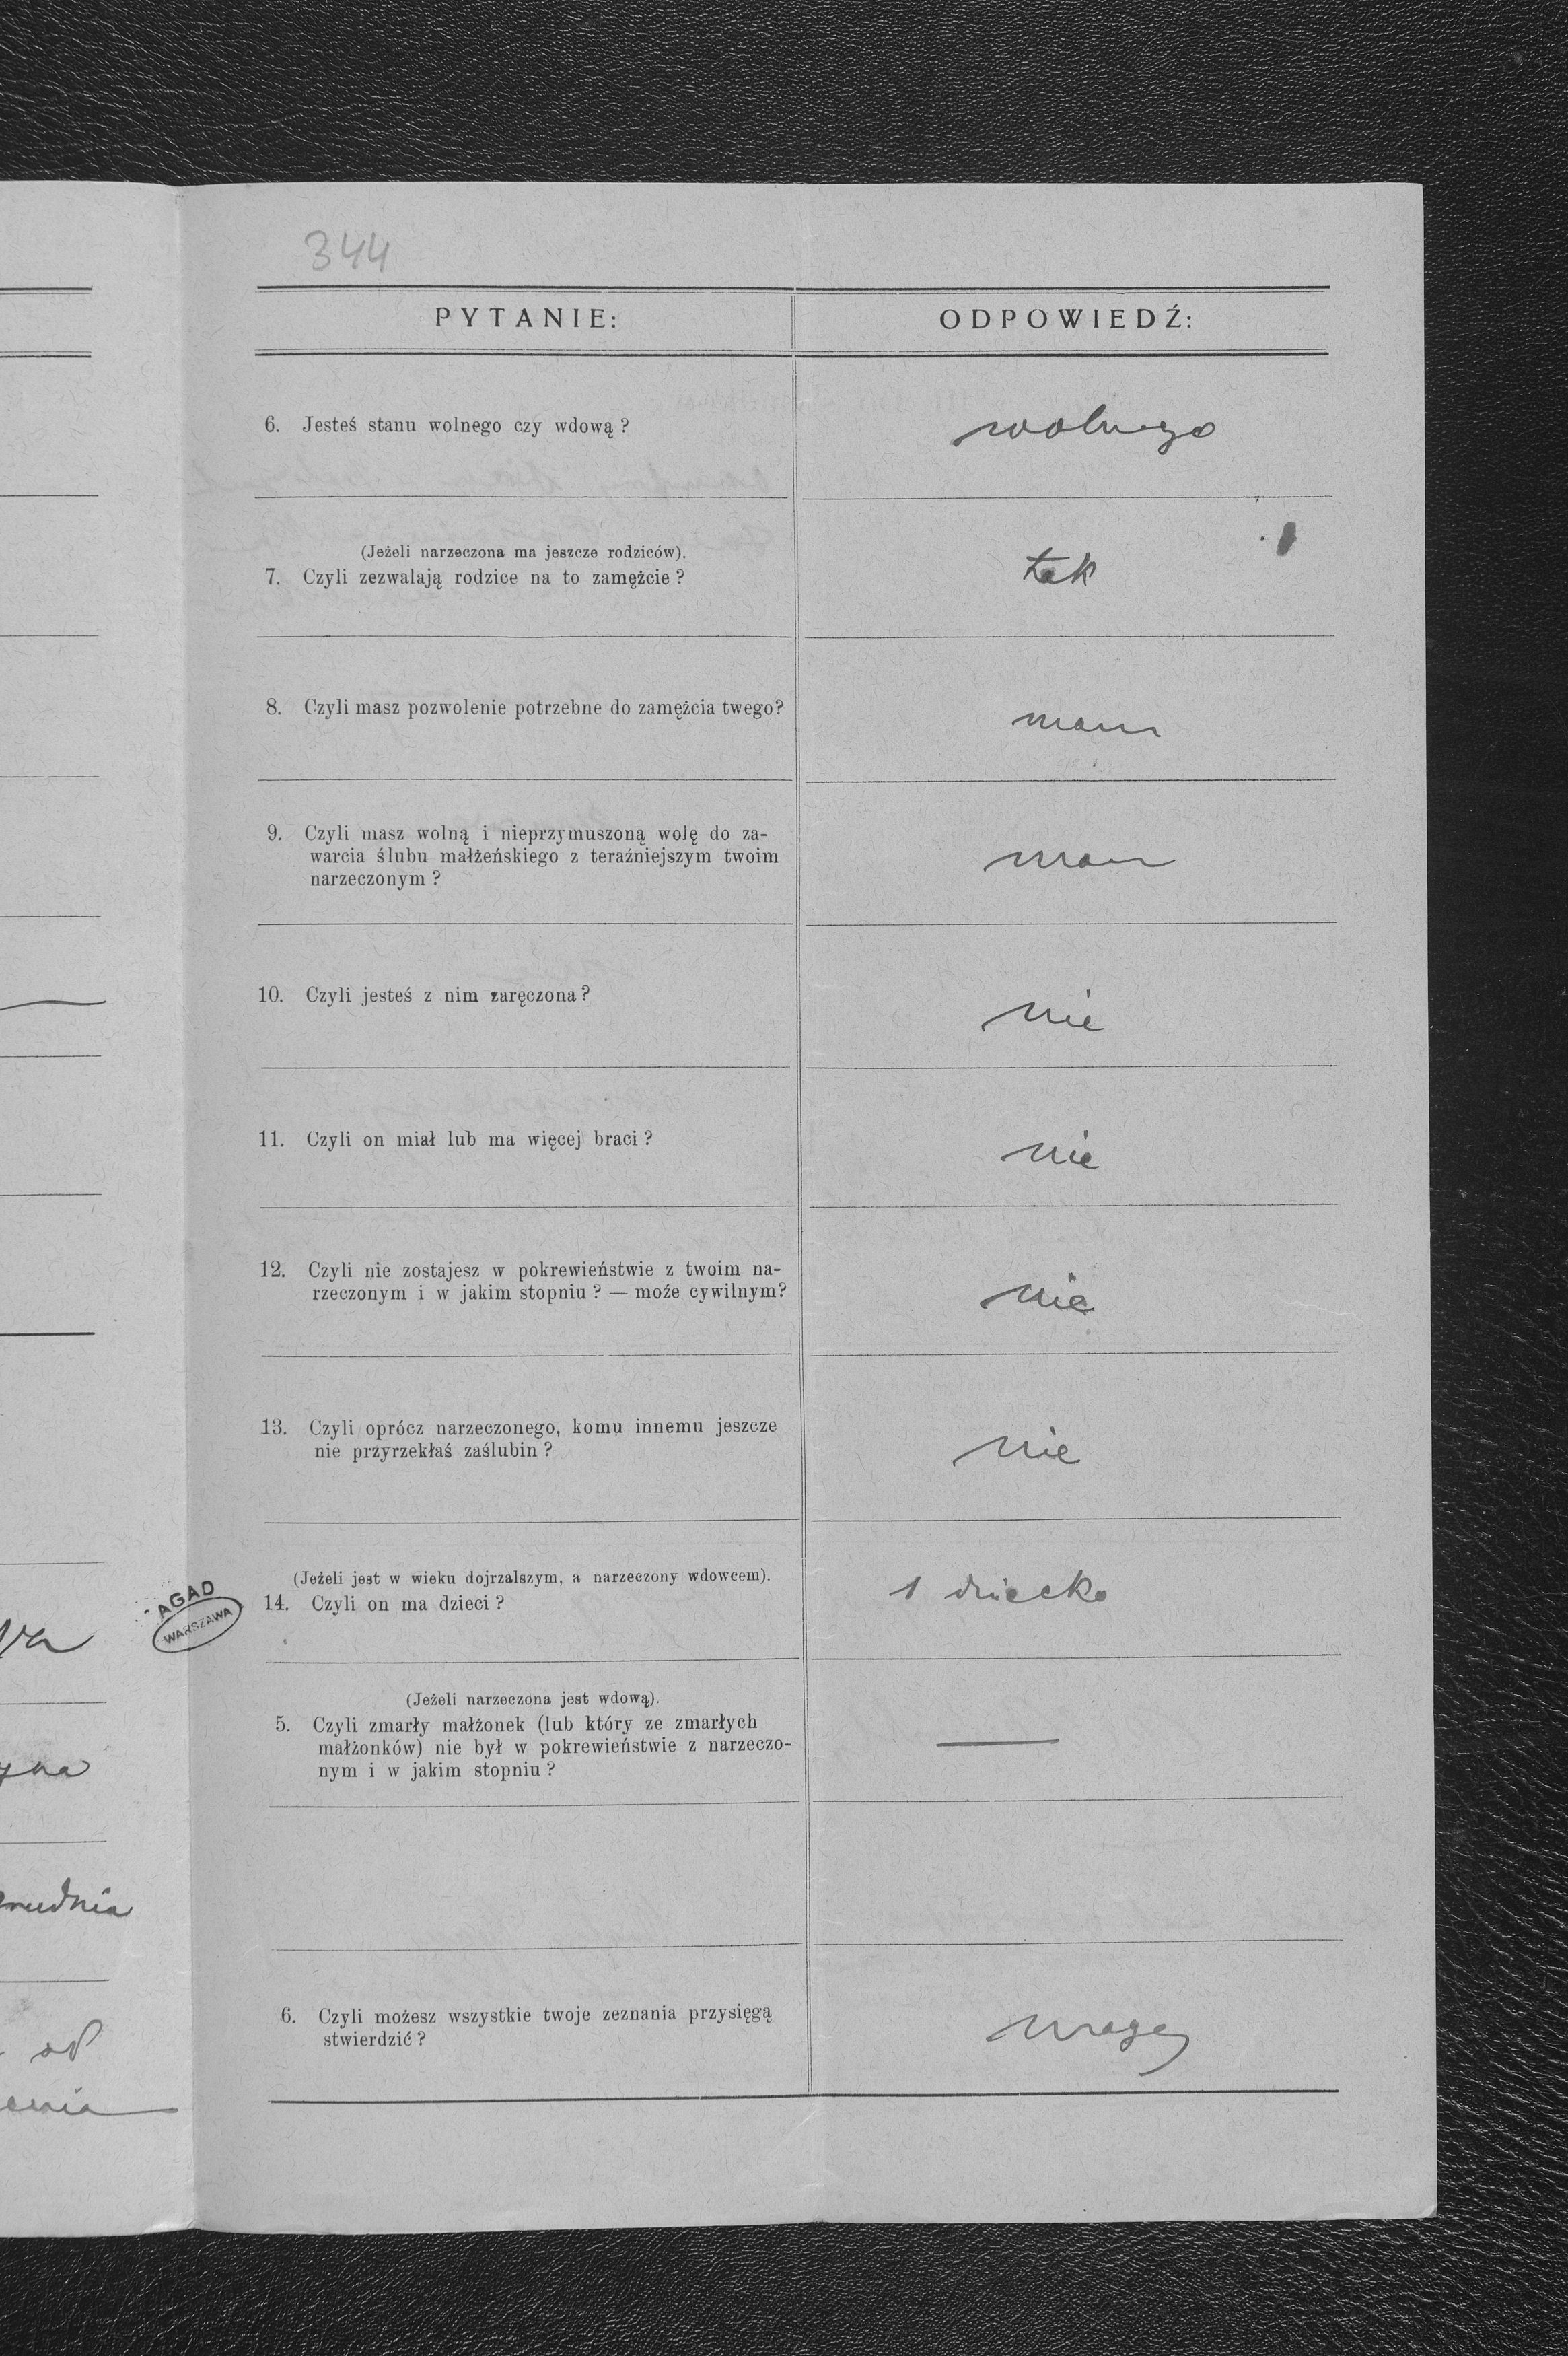 344
PYTANIE:
ODPOWIEDŹ:
6. Jesteś stanu wolnego czy wdową?
wolnego
(Jeżeli narzeczona ma jeszcze rodziców).
7. Czyli zezwalają rodzice na to zamężcie?
tak
8. Czyli masz pozwolenie potrzebne do zamężcia twego?
mam
9. Czyli masz wolną i nieprzymuszoną wolę do za-
warcia ślubu małżeńskiego z teraźniejszym twoim
narzeczonym?
mam
10. Czyli jesteś z nim zaręczona?
nie
11. Czyli on miał lub ma więcej braci?
nie
12. Czyli nie zostajesz w pokrewieństwie z twoim na-
rzeczonym i w jakim stopniu? — może cywilnym?
nie
13. Czyli oprócz narzeczonego, komu innemu jeszcze
nie przyrzekłaś zaślubin?
nie
(Jeżeli jest w wieku dojrzalszym, a narzeczony wdowcem).
14. Czyli on ma dzieci?
1 dziecko
(Jeżeli narzeczona jest wdową).
5. Czyli zmarły małżonek (lub który ze zmarłych
małżonków) nie był w pokrewieństwie z narzeczo-
nym i w jakim stopniu?
—
6. Czyli możesz wszystkie twoje zeznania przysięgą
stwierdzić?
mogę
AGAD
WARSZAWA